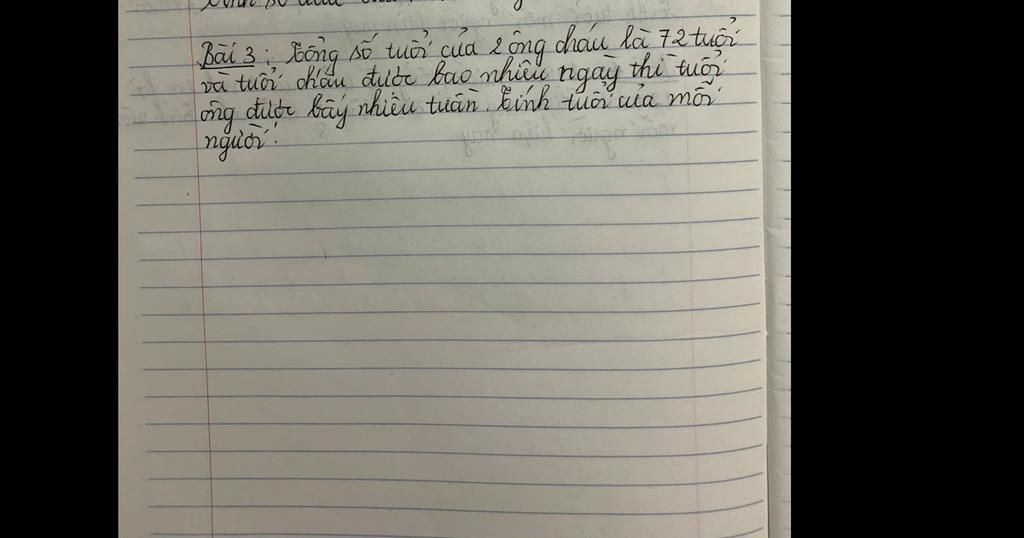 Bài 3: Tổng số tuổi của 2 ông cháu là 72 tuổi
và tuổi cháu được bao nhiêu ngày thì tuổi
ông được bấy nhiêu tuần. Tính tuổi của mỗi
người.